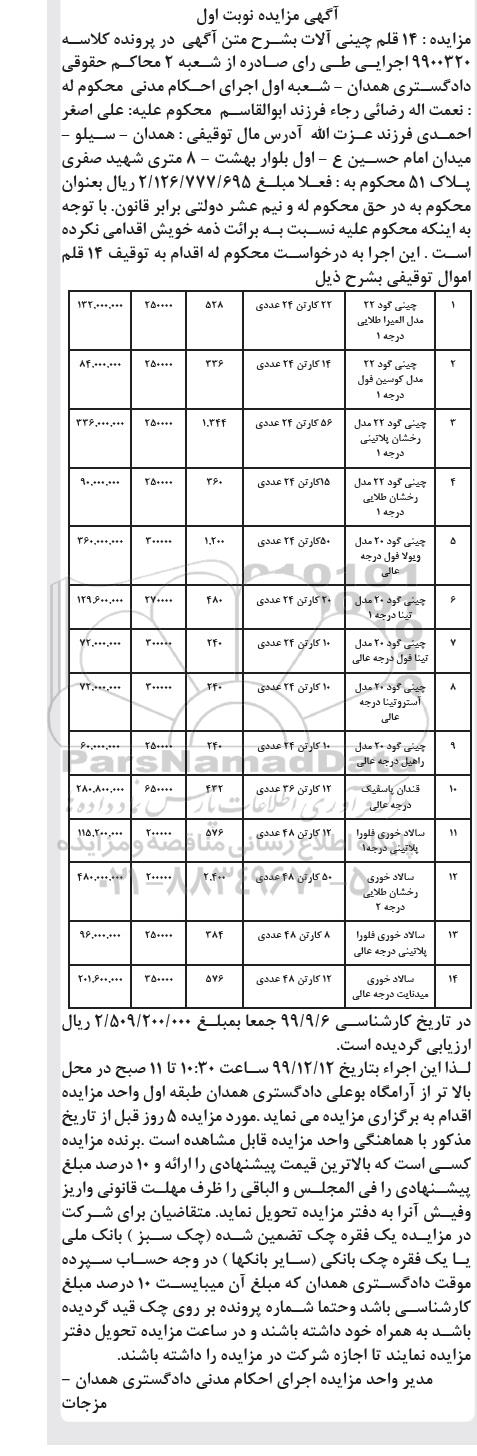 آگهی مزایده نوبت اول
مزایده : ۱۴ قلم چینی آلات بشرح متن آگهی در پرونده کلاسه
۹۹۰۰۳۲۰ اجرایی طی رای صادره از شعبه ۲ محاکم حقوقی
دادگستری همدان - شعبه اول اجرای احکام مدنی محکوم له
: نعمت اله رضائی رجاء فرزند ابوالقاسم محکوم علیه: علی اصغر
احمدی فرزند عزت الله آدرس مال توقیفی : همدان - سیلو -
میدان امام حسین ع - اول بلوار بهشت - ۸ متری شهید صفری
پلاک ۵۱ محکوم به : فعلا مبلغ ۲/۱۲۶/۷۷۷/۶۹۵ ریال بعنوان
محکوم به در حق محکوم له و نیم عشر دولتی برابر قانون. با توجه
به اینکه محکوم علیه نسبت به برائت ذمه خویش اقدامی نکرده
است . این اجرا به درخواست محکوم له اقدام به توقیف ۱۴ قلم
اموال توقیفی بشرح ذیل
۱ چینی گود ۲۲ ۲۲ کارتن ۲۴ عددی ۵۲۸ ۲۵۰۰۰۰ ۱۳۲.۰۰۰.۰۰۰
مدل المیرا طلایی
درجه ۱
۲ چینی گود ۲۲ ۱۴ کارتن ۲۴ عددی ۳۳۶ ۲۵۰۰۰۰ ۸۴.۰۰۰.۰۰۰
مدل کوسین فول
درجه ۱
۳ چینی گود ۲۲ مدل ۵۶ کارتن ۲۴ عددی ۱.۳۴۴ ۲۵۰۰۰۰ ۳۳۶.۰۰۰.۰۰۰
رخشان پلاتینی
درجه ۱
۴ چینی گود ۲۲ مدل ۱۵کارتن ۲۴ عددی ۳۶۰ ۲۵۰۰۰۰ ۹۰.۰۰۰.۰۰۰
رخشان طلایی
درجه ۱
۵ چینی گود ۲۰ مدل ۵۰کارتن ۲۴ عددی ۱.۲۰۰ ۳۰۰۰۰۰ ۳۶۰.۰۰۰.۰۰۰
ویولا فول درجه
عالی
۶ چینی گود ۲۰ مدل ۲۰ کارتن ۲۴ عددی ۴۸۰ ۲۷۰۰۰۰ ۱۲۹.۶۰۰.۰۰۰
تینا درجه ۱
۷ چینی گود ۲۰ مدل ۱۰ کارتن ۲۴ عددی ۲۴۰ ۳۰۰۰۰۰ ۷۲.۰۰۰.۰۰۰
تینا فول درجه عالی
۸ چینی گود ۲۰ مدل ۱۰ کارتن ۲۴ عددی ۲۴۰ ۳۰۰۰۰۰ ۷۲.۰۰۰.۰۰۰
آستروتینا درجه
عالی
۹ چینی گود ۲۰ مدل ۱۰ کارتن ۲۴ عددی ۲۴۰ ۲۵۰۰۰۰ ۶۰.۰۰۰.۰۰۰
راهیل درجه عالی
ParsNamadData
۱۰ قندان پاسفیک ۱۲ کارتن ۳۶ عددی ۴۳۲ ۶۵۰۰۰۰ ۲۸۰.۸۰۰.۰۰۰
درجه عالی
۱۱ سالاد خوری فلورا ۱۲ کارتن ۴۸ عددی ۵۷۶ ۲۰۰۰۰۰ ۱۱۵.۲۰۰.۰۰۰
پلاتینی درجه۱
پایگاه اطلاع رسانی مناقصه و مزایده
۱۲ سالاد خوری ۵۰ کارتن ۴۸ عددی ۲.۴۰۰ ۲۰۰۰۰۰ ۴۸۰.۰۰۰.۰۰۰
رخشان طلایی
درجه ۲
۰۲۱-۸۸۳۴۹۶۷۰-۵
۱۳ سالاد خوری فلورا ۸ کارتن ۴۸ عددی ۳۸۴ ۲۵۰۰۰۰ ۹۶.۰۰۰.۰۰۰
پلاتینی درجه عالی
۱۴ سالاد خوری ۱۲ کارتن ۴۸ عددی ۵۷۶ ۳۵۰۰۰۰ ۲۰۱.۶۰۰.۰۰۰
میدنایت درجه عالی
در تاریخ کارشناسی ۹۹/۹/۶ جمعا بمبلغ ۲/۵۰۹/۲۰۰/۰۰۰ ریال
ارزیابی گردیده است.
لذا این اجراء بتاریخ ۹۹/۱۲/۱۲ ساعت ۱۰:۳۰ تا ۱۱ صبح در محل
بالا تر از آرامگاه بوعلی دادگستری همدان طبقه اول واحد مزایده
اقدام به برگزاری مزایده می نماید .مورد مزایده ۵ روز قبل از تاریخ
مذکور با هماهنگی واحد مزایده قابل مشاهده است .برنده مزایده
کسی است که بالاترین قیمت پیشنهادی را ارائه و ۱۰ درصد مبلغ
پیشنهادی را فی المجلس و الباقی را ظرف مهلت قانونی واریز
وفیش آنرا به دفتر مزایده تحویل نماید. متقاضیان برای شرکت
در مزایده یک فقره چک تضمین شده (چک سبز ) بانک ملی
یا یک فقره چک بانکی (سایر بانکها ) در وجه حساب سپرده
موقت دادگستری همدان که مبلغ آن میبایست ۱۰ درصد مبلغ
کارشناسی باشد وحتما شماره پرونده بر روی چک قید گردیده
باشد به همراه خود داشته باشند و در ساعت مزایده تحویل دفتر
مزایده نمایند تا اجازه شرکت در مزایده را داشته باشند.
مدیر واحد مزایده اجرای احکام مدنی دادگستری همدان -
مزجات